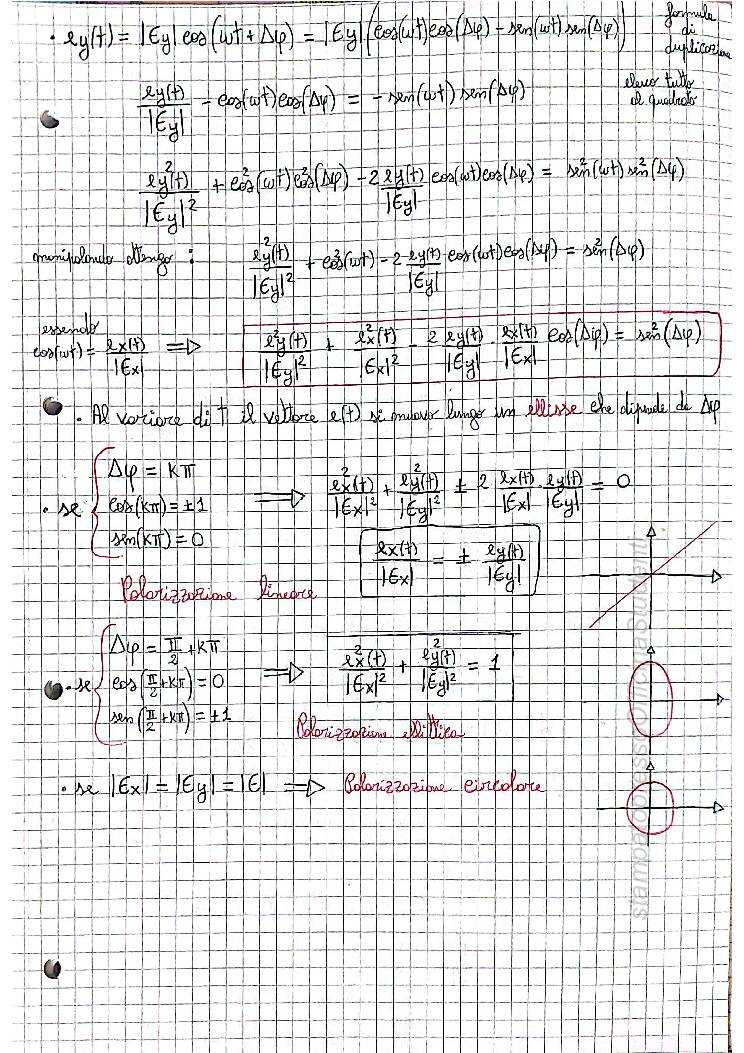 • ey(t) = |Ey| cos(ωt + Δφ) = |Ey| (cos(ωt)cos(Δφ) − sen(ωt) sen(Δφ)) formula di duplicazione
ey(t)/|Ey| − cos(ωt)cos(Δφ) = − sen(ωt) sen(Δφ) elevo tutto al quadrato
ey²(t)/|Ey|² + cos²(ωt) cos²(Δφ) − 2 ey(t)/|Ey| cos(ωt)cos(Δφ) = sen²(ωt) sen²(Δφ)
manipolando ottengo : ey²(t)/|Ey|² + cos²(ωt) − 2 ey(t)/|Ey| cos(ωt)cos(Δφ) = sen²(Δφ)
essendo
cos(ωt) = ex(t)/|Ex| ⇒ e²y(t)/|Ey|² + ex²(t)/|Ex|² − 2 ey(t)/|Ey| · ex(t)/|Ex| cos(Δφ) = sen²(Δφ)
• Al variare di t il vettore e(t) si muove lungo un ellisse che dipende da Δφ
Δφ = Kπ
• se cos(Kπ) = ±1 ⇒ ex²(t)/|Ex|² + ey²(t)/|Ey|² ± 2 ex(t)/|Ex| · ey(t)/|Ey| = 0
sen(Kπ) = 0
ex(t)/|Ex| = ± ey(t)/|Ey|
Polarizzazione lineare
Δφ = π/2 + Kπ
• se cos(π/2 + Kπ) = 0 ⇒ ex²(t)/|Ex|² + ey²(t)/|Ey|² = 1
sen(π/2 + Kπ) = ±1
Polarizzazione ellittica
• se |Ex| = |Ey| = |E| ⇒ Polarizzazione circolare